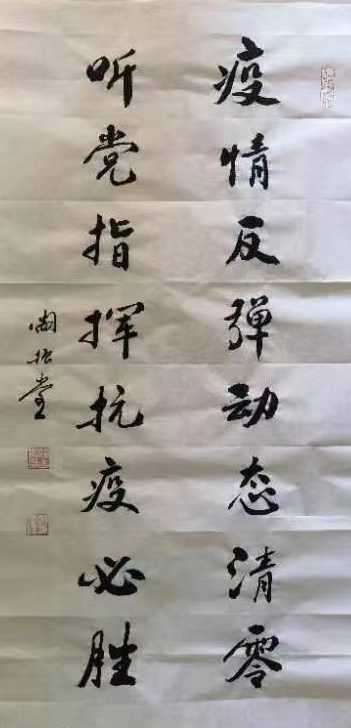 疫情反弹动态清零
听党指挥抗疫必胜